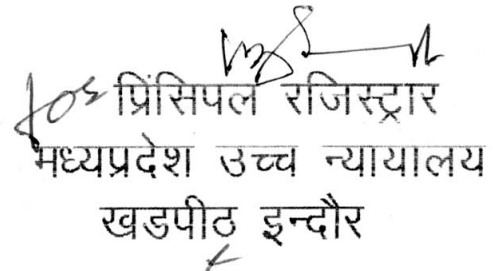 for प्रिंसिपल रजिस्ट्रार
मध्यप्रदेश उच्च न्यायालय
खडपीठ इन्दौर